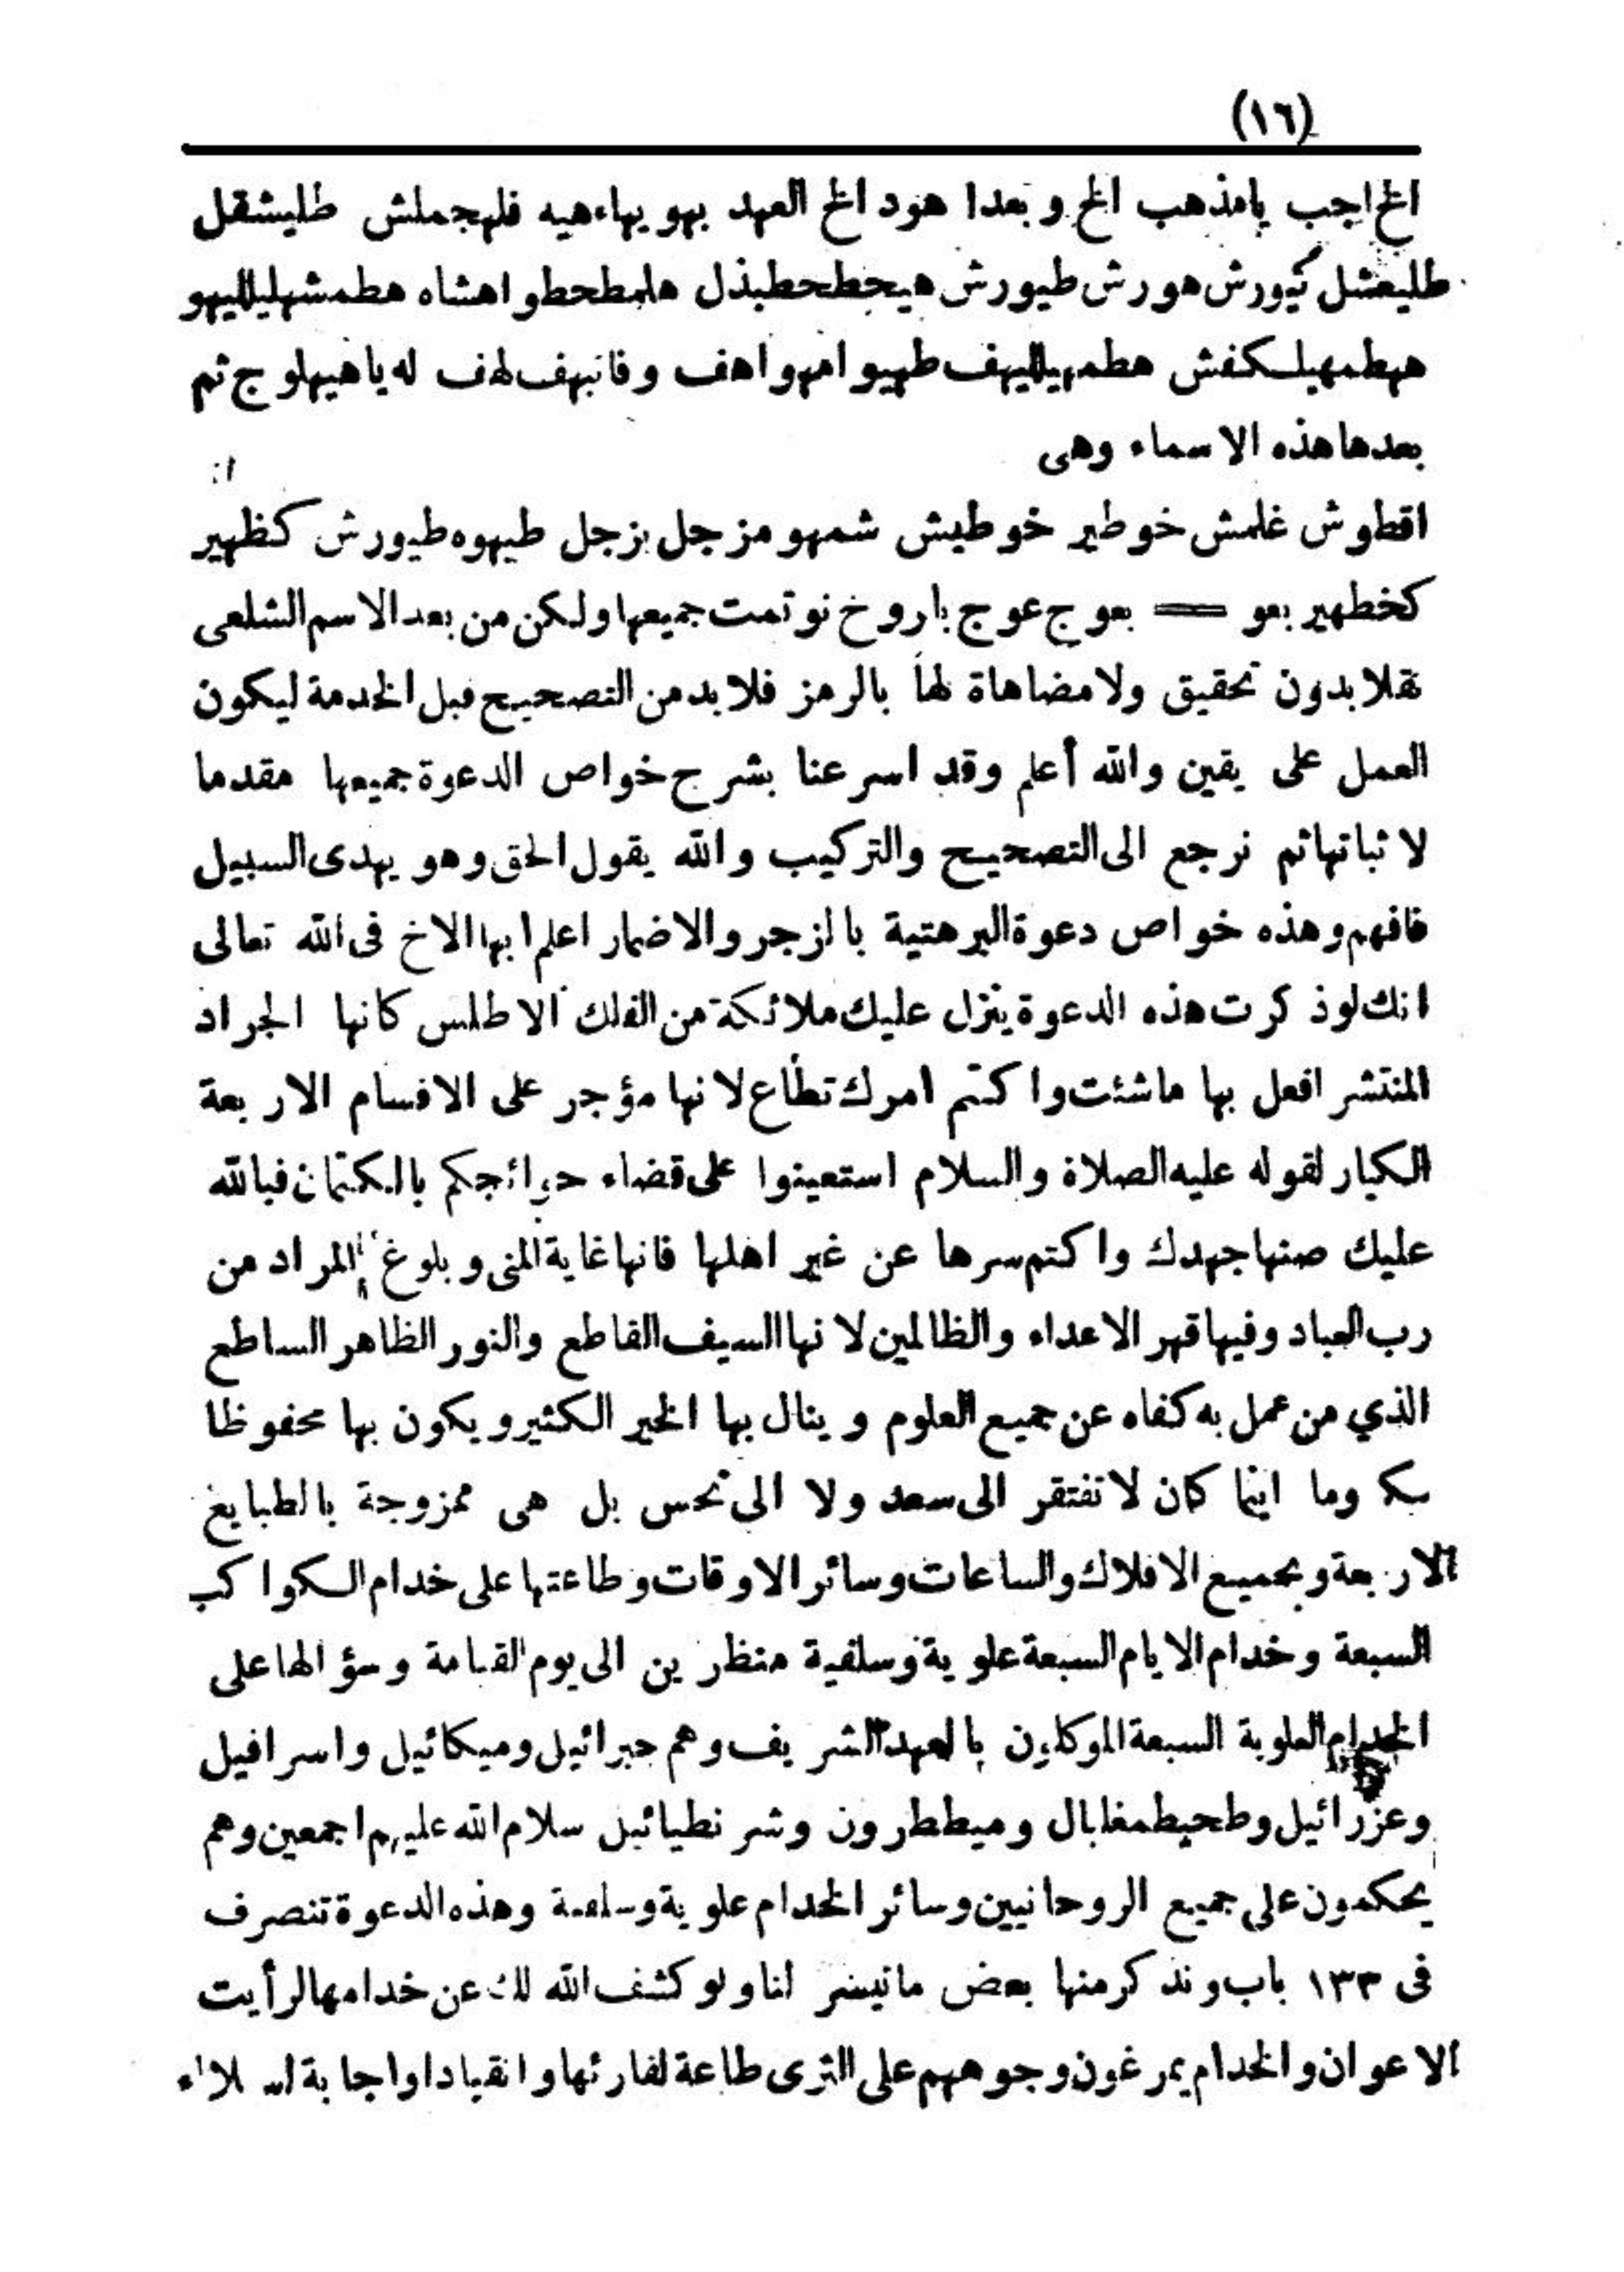 (١٦)
الخ اجب يامذهب الخ وبعدا هود الخ العهد بهو يهاءهيه فلهجملش طليشقل
طليعشل كيورش هورش طيورش هيحطحطبذل هلمطحطو اهشاه هطمشهليلليهو
ههطمهيلسكفش هطمهيلليهف طهيوا مهواهف وفانبهف لهف له ياهيهلوج ثم
بعدها هذه الاسماء وهى
اقطوش غلمش خوطير خوطيش شمهو مزجل بزجل طيهوه طيورش كظهير
كخطهير بعو = بعوج عوج باروخ نو تمت جميعها ولكن من بعد الاسم الشلعى
نقلا بدون تحقيق ولا مضاهاة لها بالرمز فلابد من التصحيح قبل الخدمة ليكون
العمل على يقين والله أعلم وقد اسرعنا بشرح خواص الدعوة جميعها مقدما
لاثباتها ثم نرجع الى التصحيح والتركيب والله يقول الحق وهو يهدى السبيل
فافهم وهذه خواص دعوة البرهتية بالزجر والاضمار اعلم ايها الاخ فى الله تعالى
انك لو ذكرت هذه الدعوة ينزل عليك ملائكة من الفلك الاطلس كانها الجراد
المنتشر افعل بها ماشئت واكتم امرك تطاع لانها مؤجر على الاقسام الاربعة
الكبار لقوله عليه الصلاة والسلام استعينوا على قضاء حوائجكم بالكتمان فبالله
عليك صنها جهدك واكتم سرها عن غير اهلها فانها غاية المنى وبلوغ المراد من
رب العباد وفيها قهر الاعداء والظالمين لانها السيف القاطع والنور الظاهر الساطع
الذي من عمل به كفاه عن جميع العلوم وينال بها الخير الكثير ويكون بها محفوظا
وما اينما كان لا تفتقر الى سعد ولا الى نحس بل هى ممزوجة بالطبايع
الاربعة وبجميع الافلاك والساعات وسائر الاوقات وطاعتها على خدام الكواكب
السبعة وخدام الايام السبعة علوية وسلفية منظرين الى يوم القيامة وسؤالها على
الخدام العلوية السبعة الموكلون بالعهد الشريف وهم جبرائيل وميكائيل واسرافيل
وعزرائيل وطحيطمغليال وميططرون وشرنطيائيل سلام الله عليهم اجمعين وهم
يحكمون على جميع الروحانيين وسائر الخدام علوية وسلفية وهذه الدعوة تنصرف
فى ١٣٣ باب ونذكر منها بعض ماتيسر لنا ولو كشف الله لك عن خدامها لرأيت
الاعوان والخدام يمرغون وجوههم على الثرى طاعة لقارئها وانقيادا واجابة